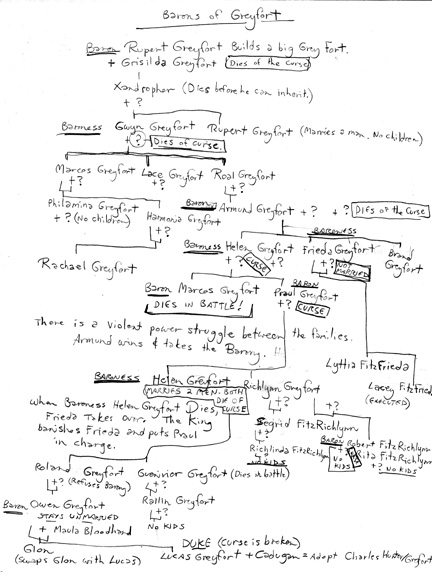 Barons of Greyfort
Baron Rupert Greyfort Builds a big Grey Fort.
+ Grisilda Greyfort Dies of the Curse
Xandropher (Dies before he can inherit.)
+ ?
Baroness Gwyn Greyfort Rupert Greyfort (Marries a man. No children)
+ ? Dies of Curse.
Marcos Greyfort Lace Greyfort Roal Greyfort
+? +? +?
Philamina Greyfort Baron Armund Greyfort + ? + ? Dies of the Curse
+ ? (No children) Harmonia Greyfort
+?
BARONESS
Baroness Helen Greyfort Frieda Greyfort Brand Greyfort
+? +? CURSE +? NOT MARRIED
Rachael Greyfort
Baron Marcos Greyfort
DIES IN BATTLE!
BARON
Praul Greyfort
+? CURSE
There is a violent power struggle between the families.
Armund wins & takes the Barony.
Lythia FitzFrieda
Lacey FitzFrieda
(EXECUTED)
BARONESS Helen Greyfort Richlynn Greyfort
MARRIES 2 MEN. BOTH DIE OF CURSE
+? +?
When Baroness Helen Greyfort Dies,
Frieda Takes over. The King
banishes Frieda and puts Praul
in charge.
Segrid FitzRichlynn
+?
Richlinda FitzRichlynn
NO KIDS
BARON Robert FitzRichlynn
+? NO KIDS
Rita FitzRichlynn
+? NO KIDS
Roland Greyfort Guenivier Greyfort (Dies in battle)
+? (Refuses Barony) +?
Baron Owen Greyfort Rallin Greyfort
STAYS UNMARRIED +?
+ Maula Bloodhand NO KIDS
Glon DUKE (Curse is broken)
(Swaps Glon with Lucas) Lucas Greyfort + Cadugan = Adopt Charles Hunter/Greyfort